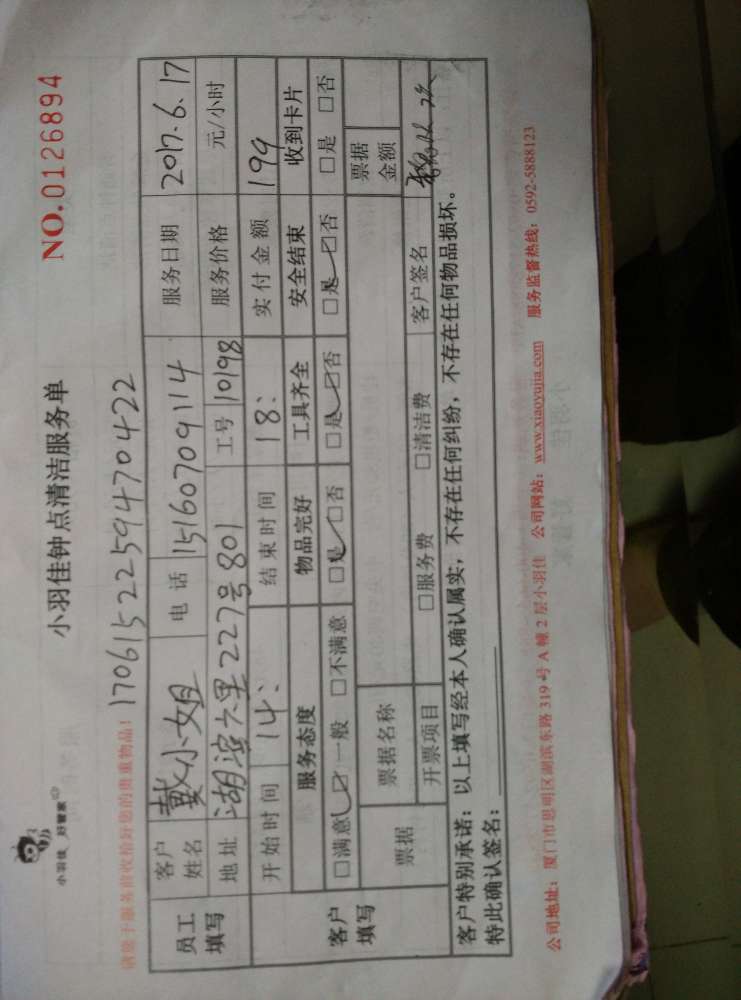 小羽佳 好管家
小羽佳钟点清洁服务单
NO.0126894
请您于服务前收拾好您的贵重物品!
1706152259470422
员工填写 客户姓名 戴小姐 电话 15160709114 服务日期 2017.6.17
地址 湖滨六里227号801 工号 10198 服务价格 元/小时
客户填写 开始时间 14: 结束时间 18: 实付金额 199
服务态度 物品完好 工具齐全 安全结束 收到卡片
□满意 □一般 □不满意 □是 □否 □是 □否 □是 □否 □是 □否
票据 票据名称 票据金额
开票项目 □服务费 □清洁费 客户签名
客户特别承诺:以上填写经本人确认属实,不存在任何纠纷,不存在任何物品损坏。
特此确认签名:
公司地址:厦门市思明区湖滨东路319号A幢2层小羽佳 公司网站:www.xiaoyujia.com 服务监督热线:0592-5888123